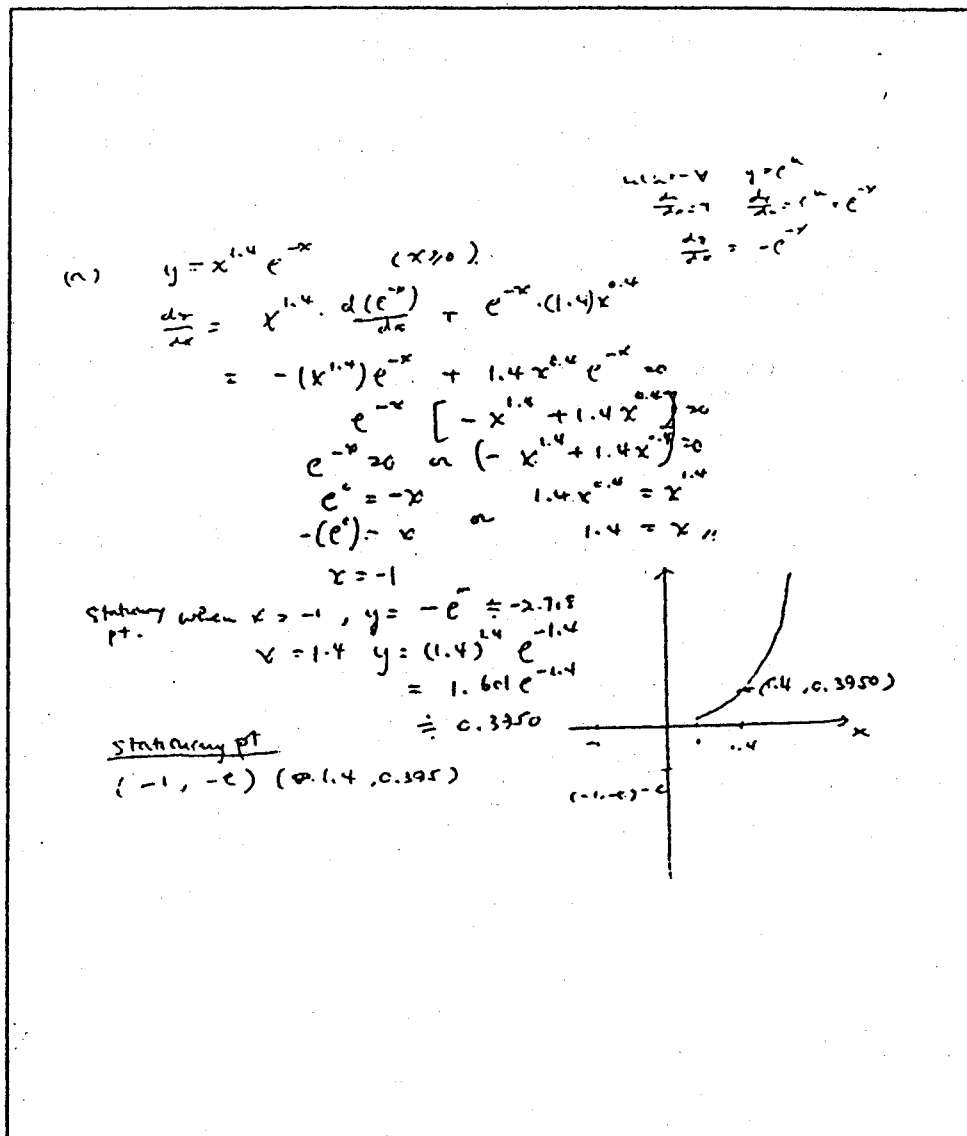 y = e^u
dy/du = e^u = e^{-x}
dy/dx = -e^{-x}
(a) y = x^{1.4} e^{-x} (x≥0).
dy/dx = x^{1.4} · d(e^{-x})/dx + e^{-x}·(1.4)x^{0.4}
= -(x^{1.4})e^{-x} + 1.4x^{0.4} e^{-x} =0
e^{-x} [-x^{1.4} + 1.4x^{0.4}] =0
e^{-x} =0 or (-x^{1.4} + 1.4x^{0.4}) =0
e^0 = -x 1.4x^{0.4} = x^{1.4}
-(e^0) = x or 1.4 = x
x = -1
Stationary pt. when x = -1, y = -e ≑ -2.718
x = 1.4 y = (1.4)^{1.4} e^{-1.4}
= 1.601e^{-1.4}
≑ 0.3950
stationary pt
(-1, -e) (1.4, 0.395)
(1.4, 0.3950)
x
1.4
(-1, -e) -e